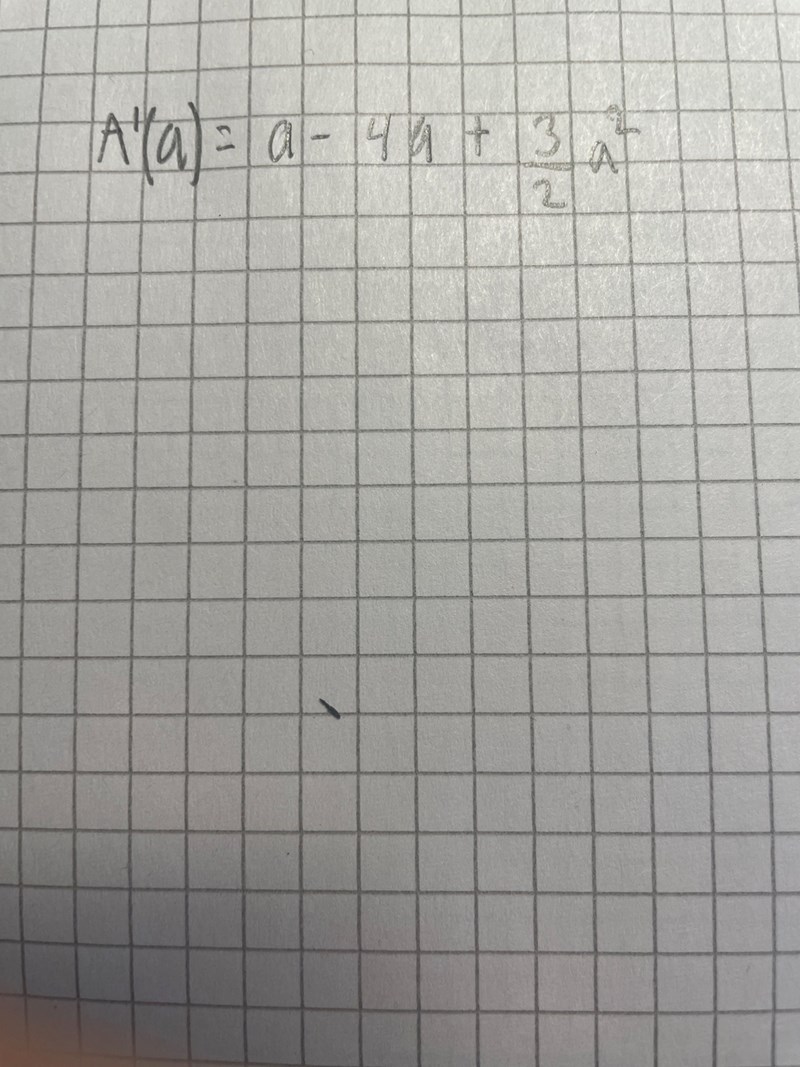 A'(a) = a - 4a + 3/2 a²